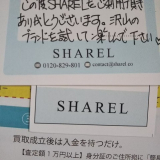 この度SHARELをご利用頂き
ありがとうございます。沢山の
ブランドを試して楽しんで下さいね
SHAREL
0120-829-801 contact@sharel.co
SHAREL
買取成立後は入金を待つだけ。
【査定額1万円以上】身分証のご住所に